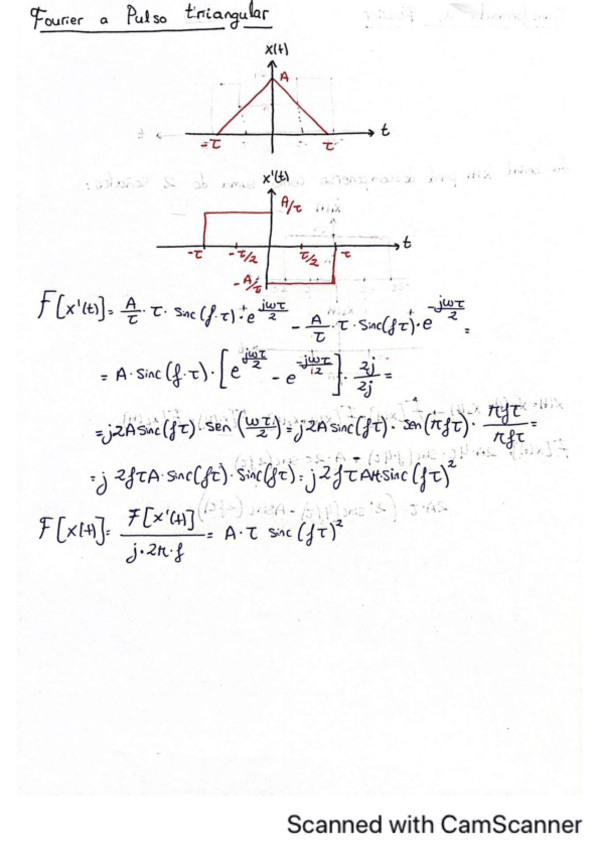 Fourier a Pulso triangular
x(t)
A
t
-τ τ
x'(t)
A/τ
t
-τ -τ/2 τ/2 τ
-A/τ
F[x'(t)] = A/τ · τ · sinc(f·τ) · e^(jωτ/2) - A/τ · τ · sinc(fτ) · e^(-jωτ/2) =
= A · sinc(f·τ) · [e^(jωτ/2) - e^(-jωτ/2)] · 2j/2j =
= j2A sinc(fτ) · sen(ωτ/2) = j2A sinc(fτ) · sen(πfτ) · πfτ/πfτ =
= j 2fτA · sinc(fτ) · sinc(fτ) = j2fτAπ sinc(fτ)²
F[x(t)] = F[x'(t)]/(j·2π·f) = A·τ sinc(fτ)²
Scanned with CamScanner